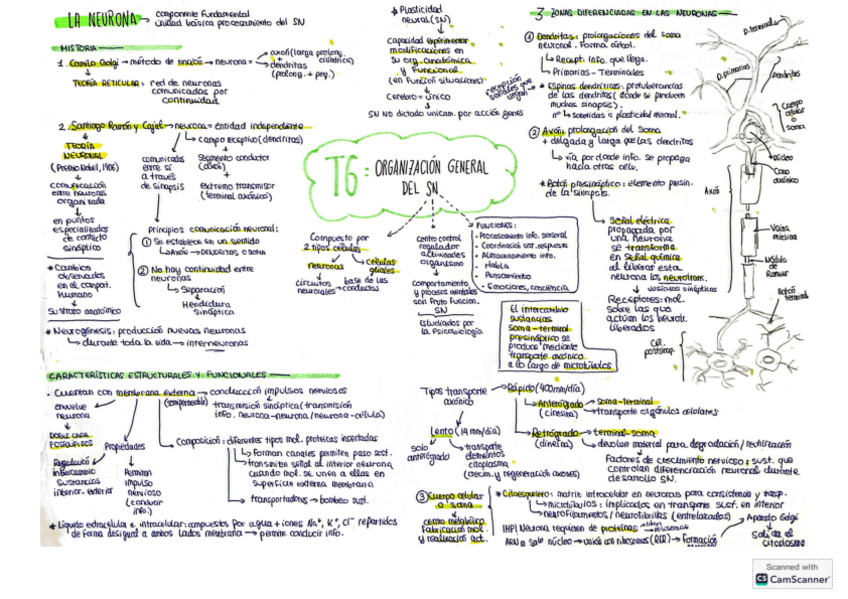 LA NEURONA → componente fundamental
unidad básica procesamiento del SN
HISTORIA
1. Camilo Golgi → método de tinción → neurona =
axón (larga prolong. cilíndrica)
+ dendritas
(prolong. + peq.)
TEORÍA RETICULAR: red de neuronas
comunicadas por
continuidad
2. Santiago Ramón y Cajal → neurona = entidad independiente
TEORÍA
NEURONAL
(Premio Nobel, 1906)
comunicación
entre neuronas
organizada
en puntos
especializados
de contacto
sináptico
* Cambios
observados
en el comport.
humano
Sustrato anatómico
comunicadas
entre sí
a través
de sinapsis
campo receptivo (dendritas)
+
Segmento conductor
(axón)
+
extremo transmisor
(terminal axónico)
Principios comunicación neuronal:
① Se establece en un sentido
Axón → DENDRITAS O SOMA
② No hay continuidad entre
neuronas
→ Separación
Hendidura
sináptica
* Neurogénesis: producción nuevas neuronas
→ durante toda la vida → interneuronas
* Plasticidad
neural (SN)
capacidad experimentar
modificaciones en
su org. anatómica
y funcional
(en función situaciones)
Cerebro = único
SN NO dictado unicam. por acción genes
T6: ORGANIZACIÓN GENERAL
DEL SN
Compuesto por
2 tipos células
neuronas
células
gliales
circuitos
neuronales
base de las
conductas
centro control
regulador
actividades
organismo
comportamiento
y procesos mentales
son fruto funcion.
SN
Estudiados por
la Psicobiología
FUNCIONES:
· Procesamiento info. sensorial
· Coordinación sist. respuesta
· Almacenamiento info.
· Habla
· Pensamiento
· Emociones, conciencia
El intercambio
sustancias
soma-terminal
presináptico se
produce mediante
transporte axónico
a lo largo de microtúbulos
3 ZONAS DIFERENCIADAS EN LAS NEURONAS
① Dendritas: prolongaciones del soma
neuronal. Forma árbol.
→ Recept. info. que llega.
→ Primarias - Terminales
recepción
señales que
* Espinas dendríticas: protuberancias
de las dendritas (donde se producen
muchas sinapsis).
nº → sometidas a plasticidad neuronal.
② Axón: prolongación del soma
+ delgada y larga que las dendritas
→ vía por donde info. se propaga
hacia otras célv.
* Botón presináptico: elemento presin.
de la sinapsis.
→ Señal eléctrica
propagada por
una neurona
se transforma
en señal química
al liberar esta
neurona los neurotran.
vesículas sinápticas
Receptores: mol.
sobre las que
actúan los neurotr.
liberados
D. terminal
D. primarias
Dendritas
Cuerpo
celular
o soma
Núcleo
Cono
axónico
Axón
Vaina
mielina
Nódulo
de
Ranvier
Botón
terminal
Cél.
postsinap.
CARACTERÍSTICAS ESTRUCTURALES Y FUNCIONALES
· Cuentan con membrana externa → conducción impulsos nerviosos
envuelve
neurona
DOBLE CAPA
FOSFOLÍPIDOS
Regulación
intercambio
sustancias
interior-exterior
Propiedades
Permiten
impulso
nervioso
(conducir
info.)
→ transmisión sináptica (transmisión
info. neurona-neurona / neurona-célula)
→ Composición: diferentes tipos mol. proteicas insertadas
→ Forman canales permiten paso sust.
→ transmiten señal al interior neurona
cuando mol. se unen a ellas en
superficie externa membrana
→ transportadoras → bombeo sust.
* Líquido extracelular e intracelular: compuestos por agua + iones Na⁺, K⁺, Cl⁻ repartidos
de forma desigual a ambos lados membrana → permite conducir info.
Tipos transporte
axónico
Rápido (400mm/día)
→ Anterógrado → soma-terminal
(cinesina) → transporte orgánulos celulares
→ Retrógrado → terminal-soma
(dineína) → devolver material para degradación/reutilización
Factores de crecimiento nervioso: sust. que
controlan diferenciación neuronal durante
desarrollo SN.
Lento (14mm/día)
solo
anterógrado
transporte
elementos
citoplasma
(crecim. y regeneración axones)
③ Cuerpo celular
o soma
centro metabólico
Fabricación mol.
y realización act.
* Citoesqueleto: matriz intracelular en neuronas para consistencia y trasp.
→ microtúbulos: implicados en transporte sust. en interior
→ neurofilamentos / neurofibrillas (entrelazados)
IMP! Neurona requiere de proteínas
ARN a solo núcleo → unión con ribosomas (RER) → Formación
Aparato Golgi
Salida al
citoplasma
Scanned with
CS CamScanner